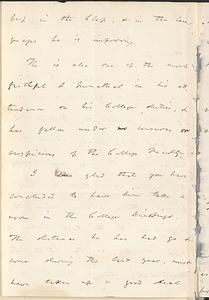 keep in the Class, & in the lan-
guages he is improving.
He is also one of the most
faithful & punctual in his at-
tendance on his College duties, &
has fallen under no censures or
suspicions of the College Faculty.
I am glad that you have
concluded to have him take a
room in the College Buildings.
The distance he has had to go &
come during the last year, must
have taken up a good deal